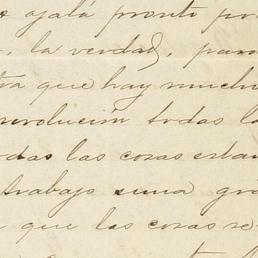 ojalá pronto po
, la verdad, par
que hay much
revolución todas l
das las cosas esta
trabajo suma gr
que las cosas se